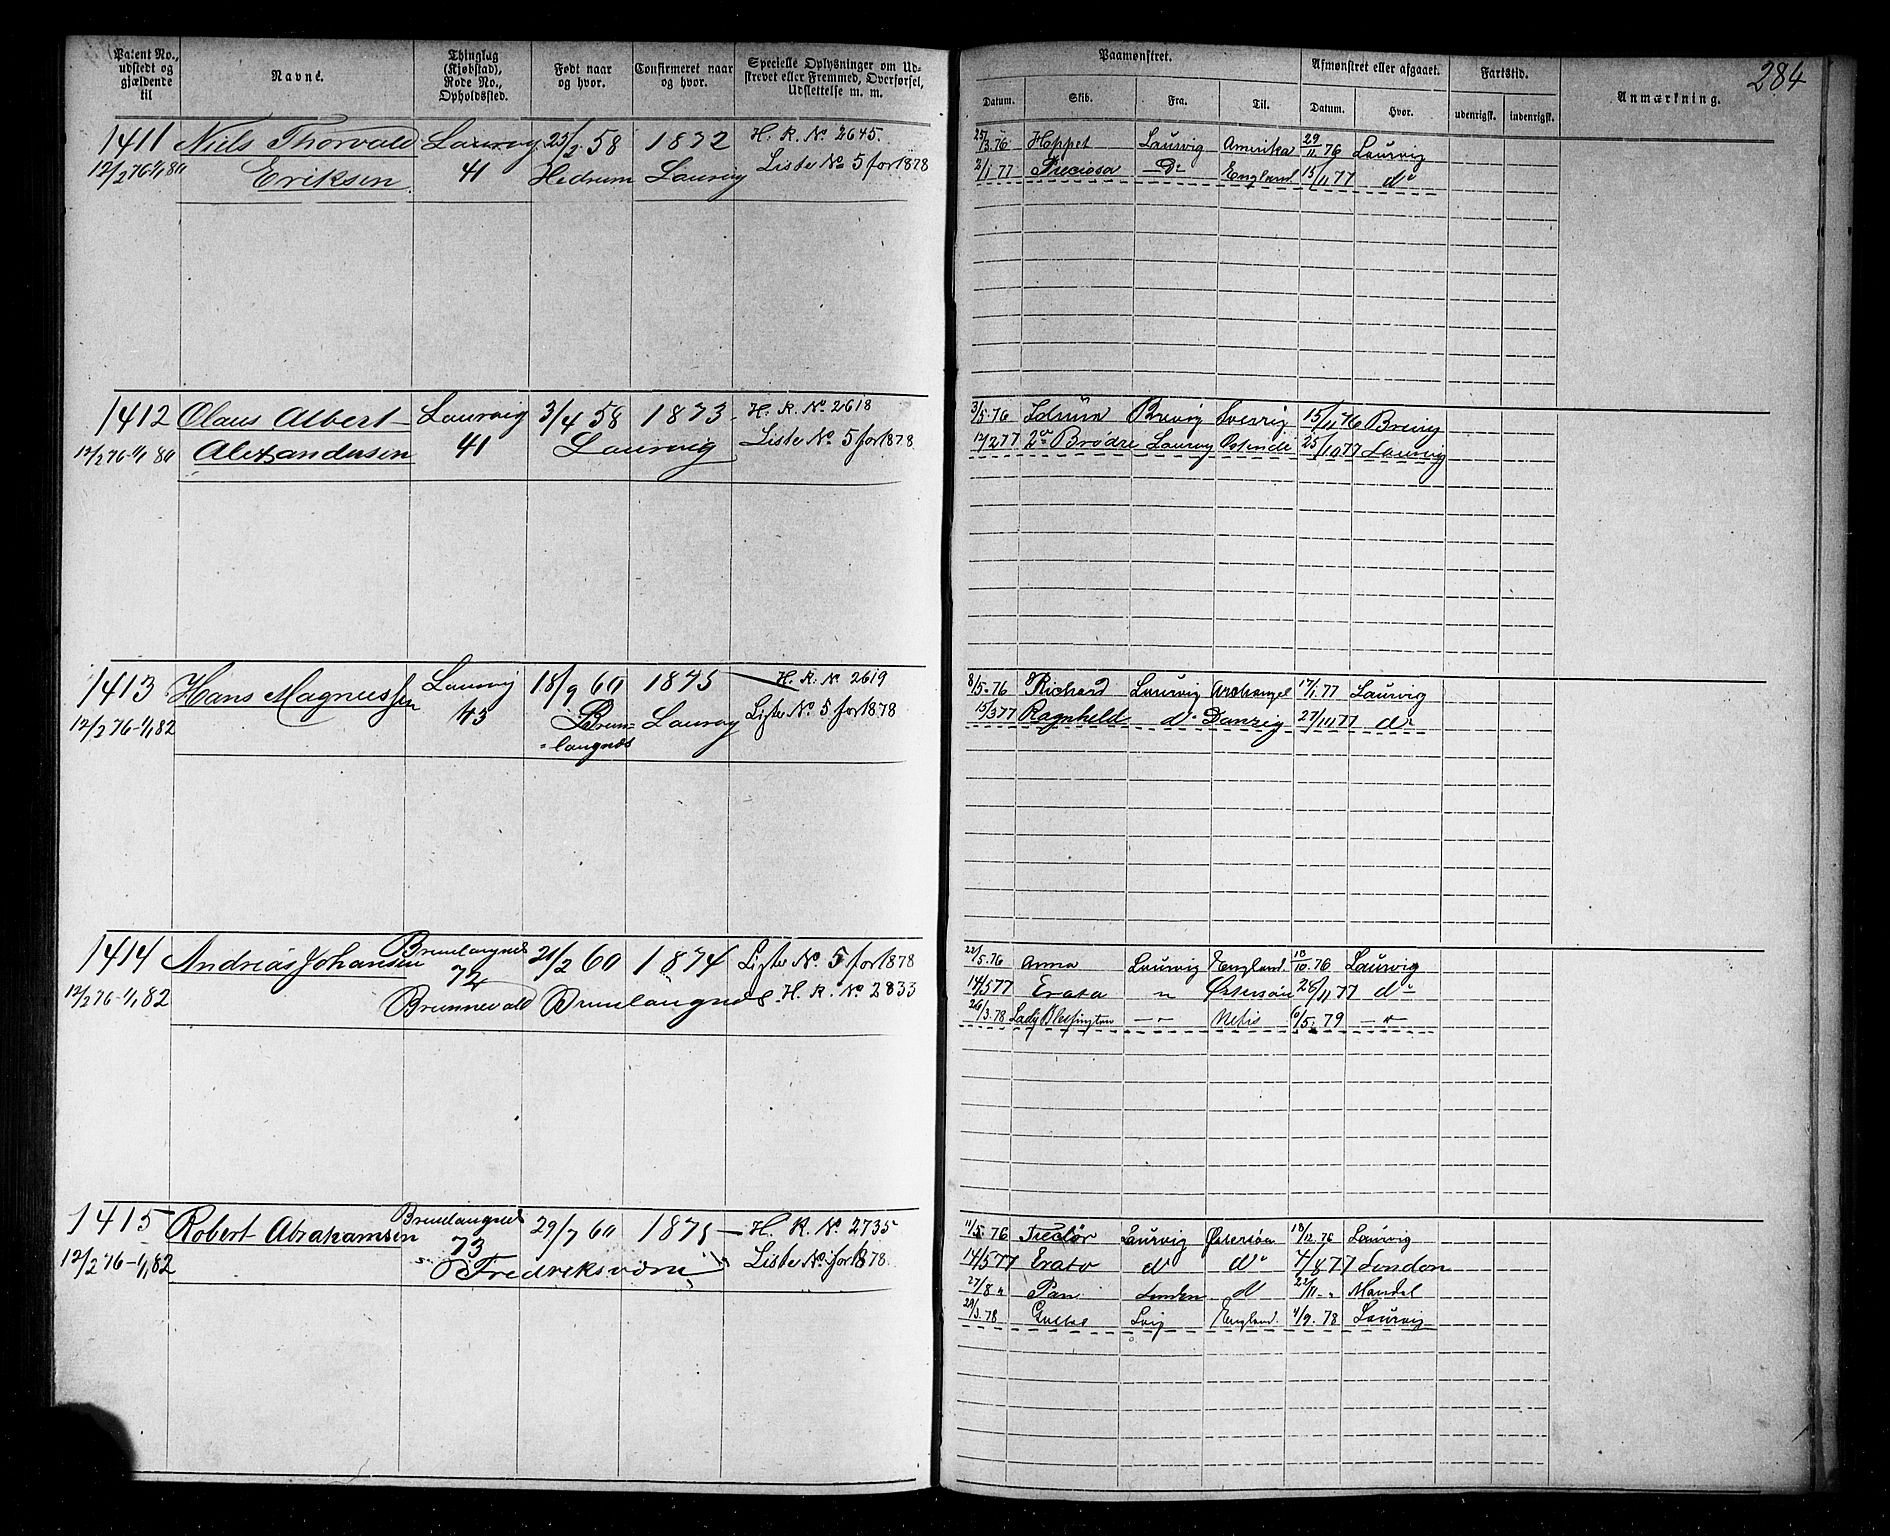 284
Patent No., udstedt og gjældende til
Navne.
Thinglag (Kjøbstad), Rode No., Opholdssted.
Født naar og hvor.
Confirmeret naar og hvor.
Specielle Oplysninger om Udskrevet eller Fremmed, Overførsel, Udslettelse m. m.
Paamønstret.
Datum. Skib. Fra. Til.
Afmønstret eller afgaaet.
Datum. Hvor.
Fartstid.
udenrigsk. indenrigsk.
Anmærkning.
1411 Niels Thorvald Laurvig 25/2 58 1872 H. R. No 2645.
12/2 76-1/1 80 Eriksen. 41 Hedrum Laurvig Liste No 5 for 1878
25/3.76 Happet Laurvig Amerika 29/11 76 Laurvig
2/1 77 Preciosa - Do England 15/11 77 do
1412 Olaus Albert Laurvig 3/4 58 1873 H. R. No 2618
12/2 76-1/1 80 Alexandersen 41 Laurvig Liste No 5 for 1878
3/5.76 Brevig Sverig 15/11 76 Brevig
17/2 77 2de Brødre Laurvig Ostende 25/10 77 Laurvig
1413 Hans Magnussen Laurvig 18/9 60 1875 H. R. No 2619
12/2 76-1/1 82 45 Brun= Laurvig Liste No 5 for 1878
=langnæs
8/5.76 Richard Laurvig Archangel 17/1.77 Laurvig
15/3 77 Ragnhild do Danzig 27/11 77 do
1414 Andreas Johansen Brunlangnæs 21/2 60 1874 Liste No. 5 for 1878
12/2 76-1/1 82 72 Brunnevald Brunlangnæs H. R. No 2833
22/5.76 Anna Laurvig England 18/10.76 Laurvig
14/5 77 Erato " Østersøen 28/11 77 do
26/3.78 Lady Blessington - " - 6/5.79 - " -
1415 Robert Abrahamsen Brunlangnæs 29/7 60 1875 H. R. No. 2735
12/2 76-1/1 82 73 Fredriksværn Liste No. for 1878.
11/5.76 Laurvig Østersøen 18/12.76 Laurvig
14/5 77 Erato do do 4/8 77 London
27/8 " Pan London do 22/11 - " Mandal
29/3.78 Lvig England 4/9.78 Laurvig